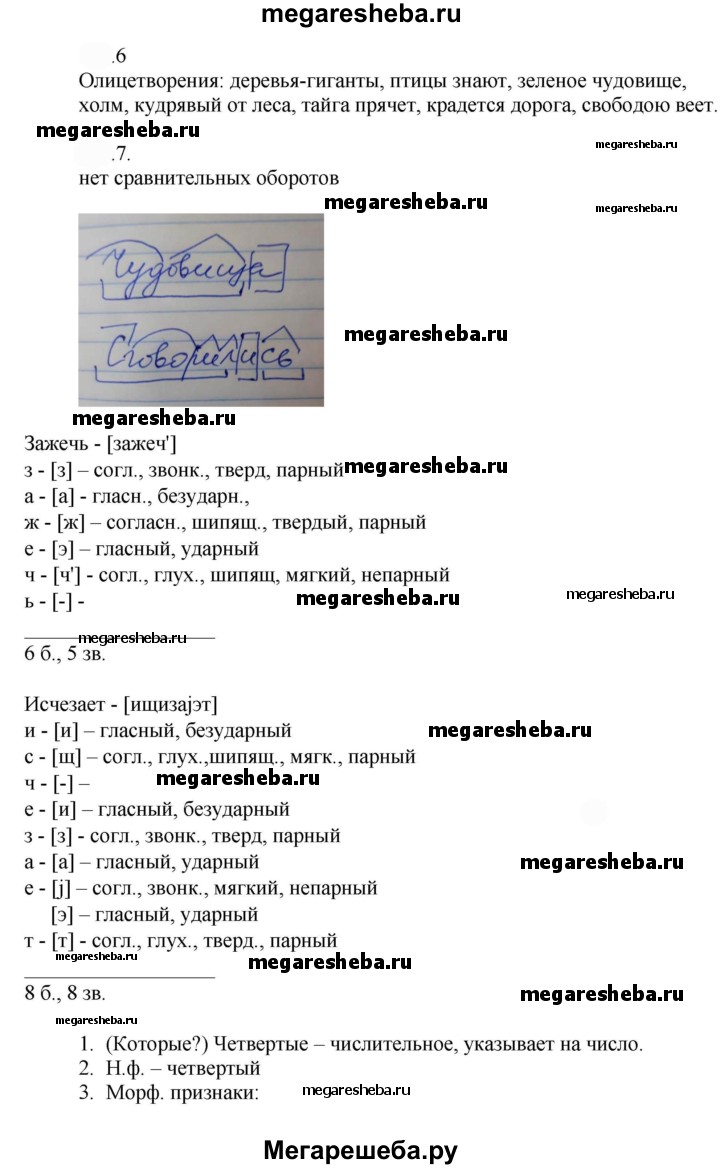 megaresheba.ru
.6
Олицетворения: деревья-гиганты, птицы знают, зеленое чудовище,
холм, кудрявый от леса, тайга прячет, крадется дорога, свободою веет.
megaresheba.ru
.7.
megaresheba.ru
нет сравнительных оборотов
megaresheba.ru
megaresheba.ru
Чудовища
megaresheba.ru
Сговорились
megaresheba.ru
Зажечь - [зажеч']
з - [з] – согл., звонк., тверд, парный
megaresheba.ru
а - [а] - гласн., безударн.,
ж - [ж] – согласн., шипящ., твердый, парный
е - [э] – гласный, ударный
ч - [ч'] - согл., глух., шипящ, мягкий, непарный
ь - [-] -
megaresheba.ru
megaresheba.ru
megaresheba.ru
6 б., 5 зв.
Исчезает - [ищизаjэт]
и - [и] – гласный, безударный
megaresheba.ru
с - [щ] – согл., глух.,шипящ., мягк., парный
ч - [-] –
megaresheba.ru
е - [и] – гласный, безударный
з - [з] - согл., звонк., тверд, парный
а - [а] – гласный, ударный
megaresheba.ru
е - [j] – согл., звонк., мягкий, непарный
[э] – гласный, ударный
т - [т] - согл., глух., тверд., парный
megaresheba.ru
megaresheba.ru
8 б., 8 зв.
megaresheba.ru
megaresheba.ru
1. (Которые?) Четвертые – числительное, указывает на число.
2. Н.ф. – четвертый
3. Морф. признаки:
megaresheba.ru
Мегарешеба.ру